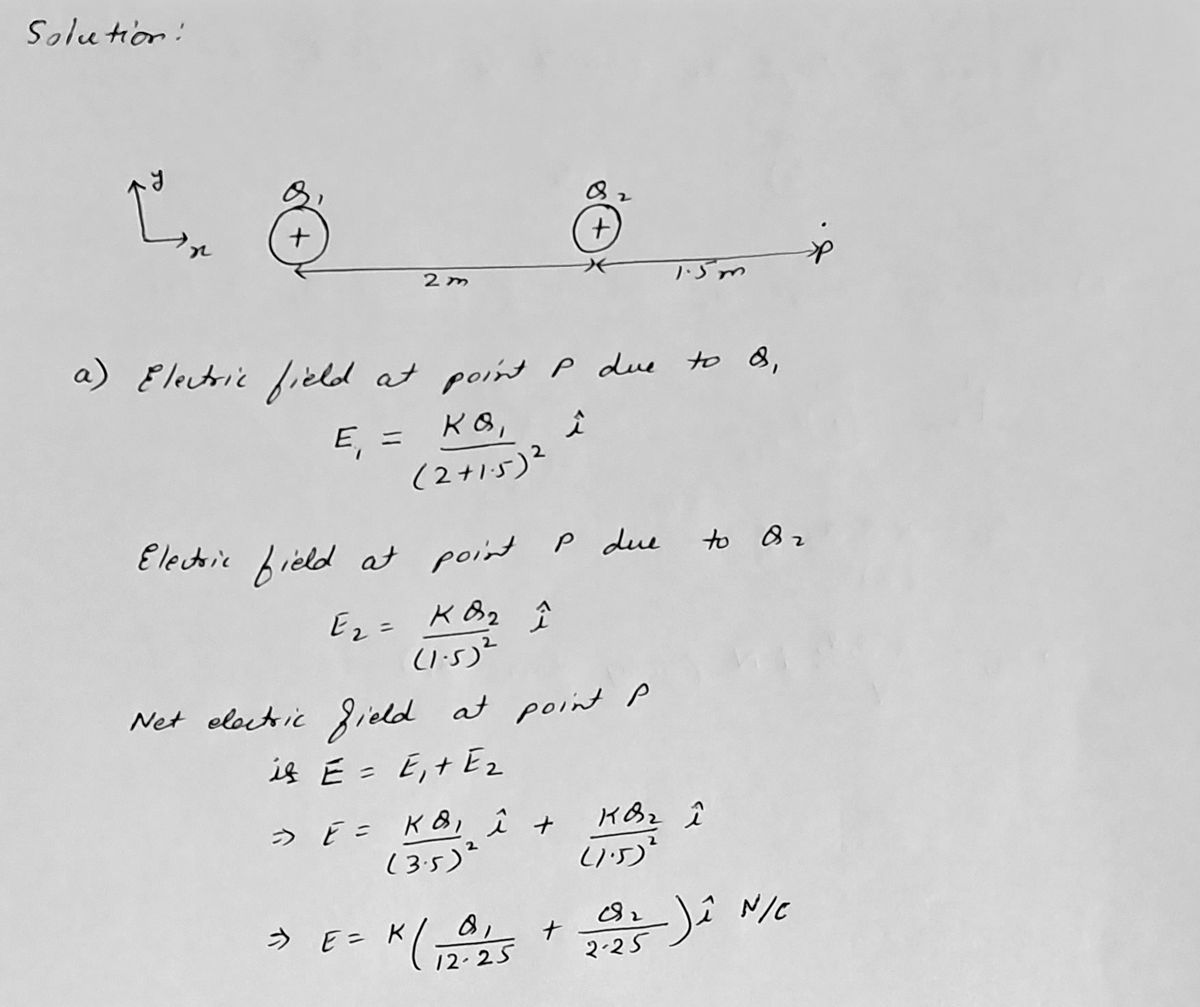 Solution:
y
Q₁ Q₂
+ +
x P
2 m 1.5 m
a) Electric field at point P due to Q₁
E₁ = KQ₁/(2+1.5)² î
Electric field at point P due to Q₂
E₂ = KQ₂/(1.5)² î
Net electric field at point P
is E = E₁ + E₂
⇒ E = KQ₁/(3.5)² î + KQ₂/(1.5)² î
⇒ E = K(Q₁/12.25 + Q₂/2.25) î N/C